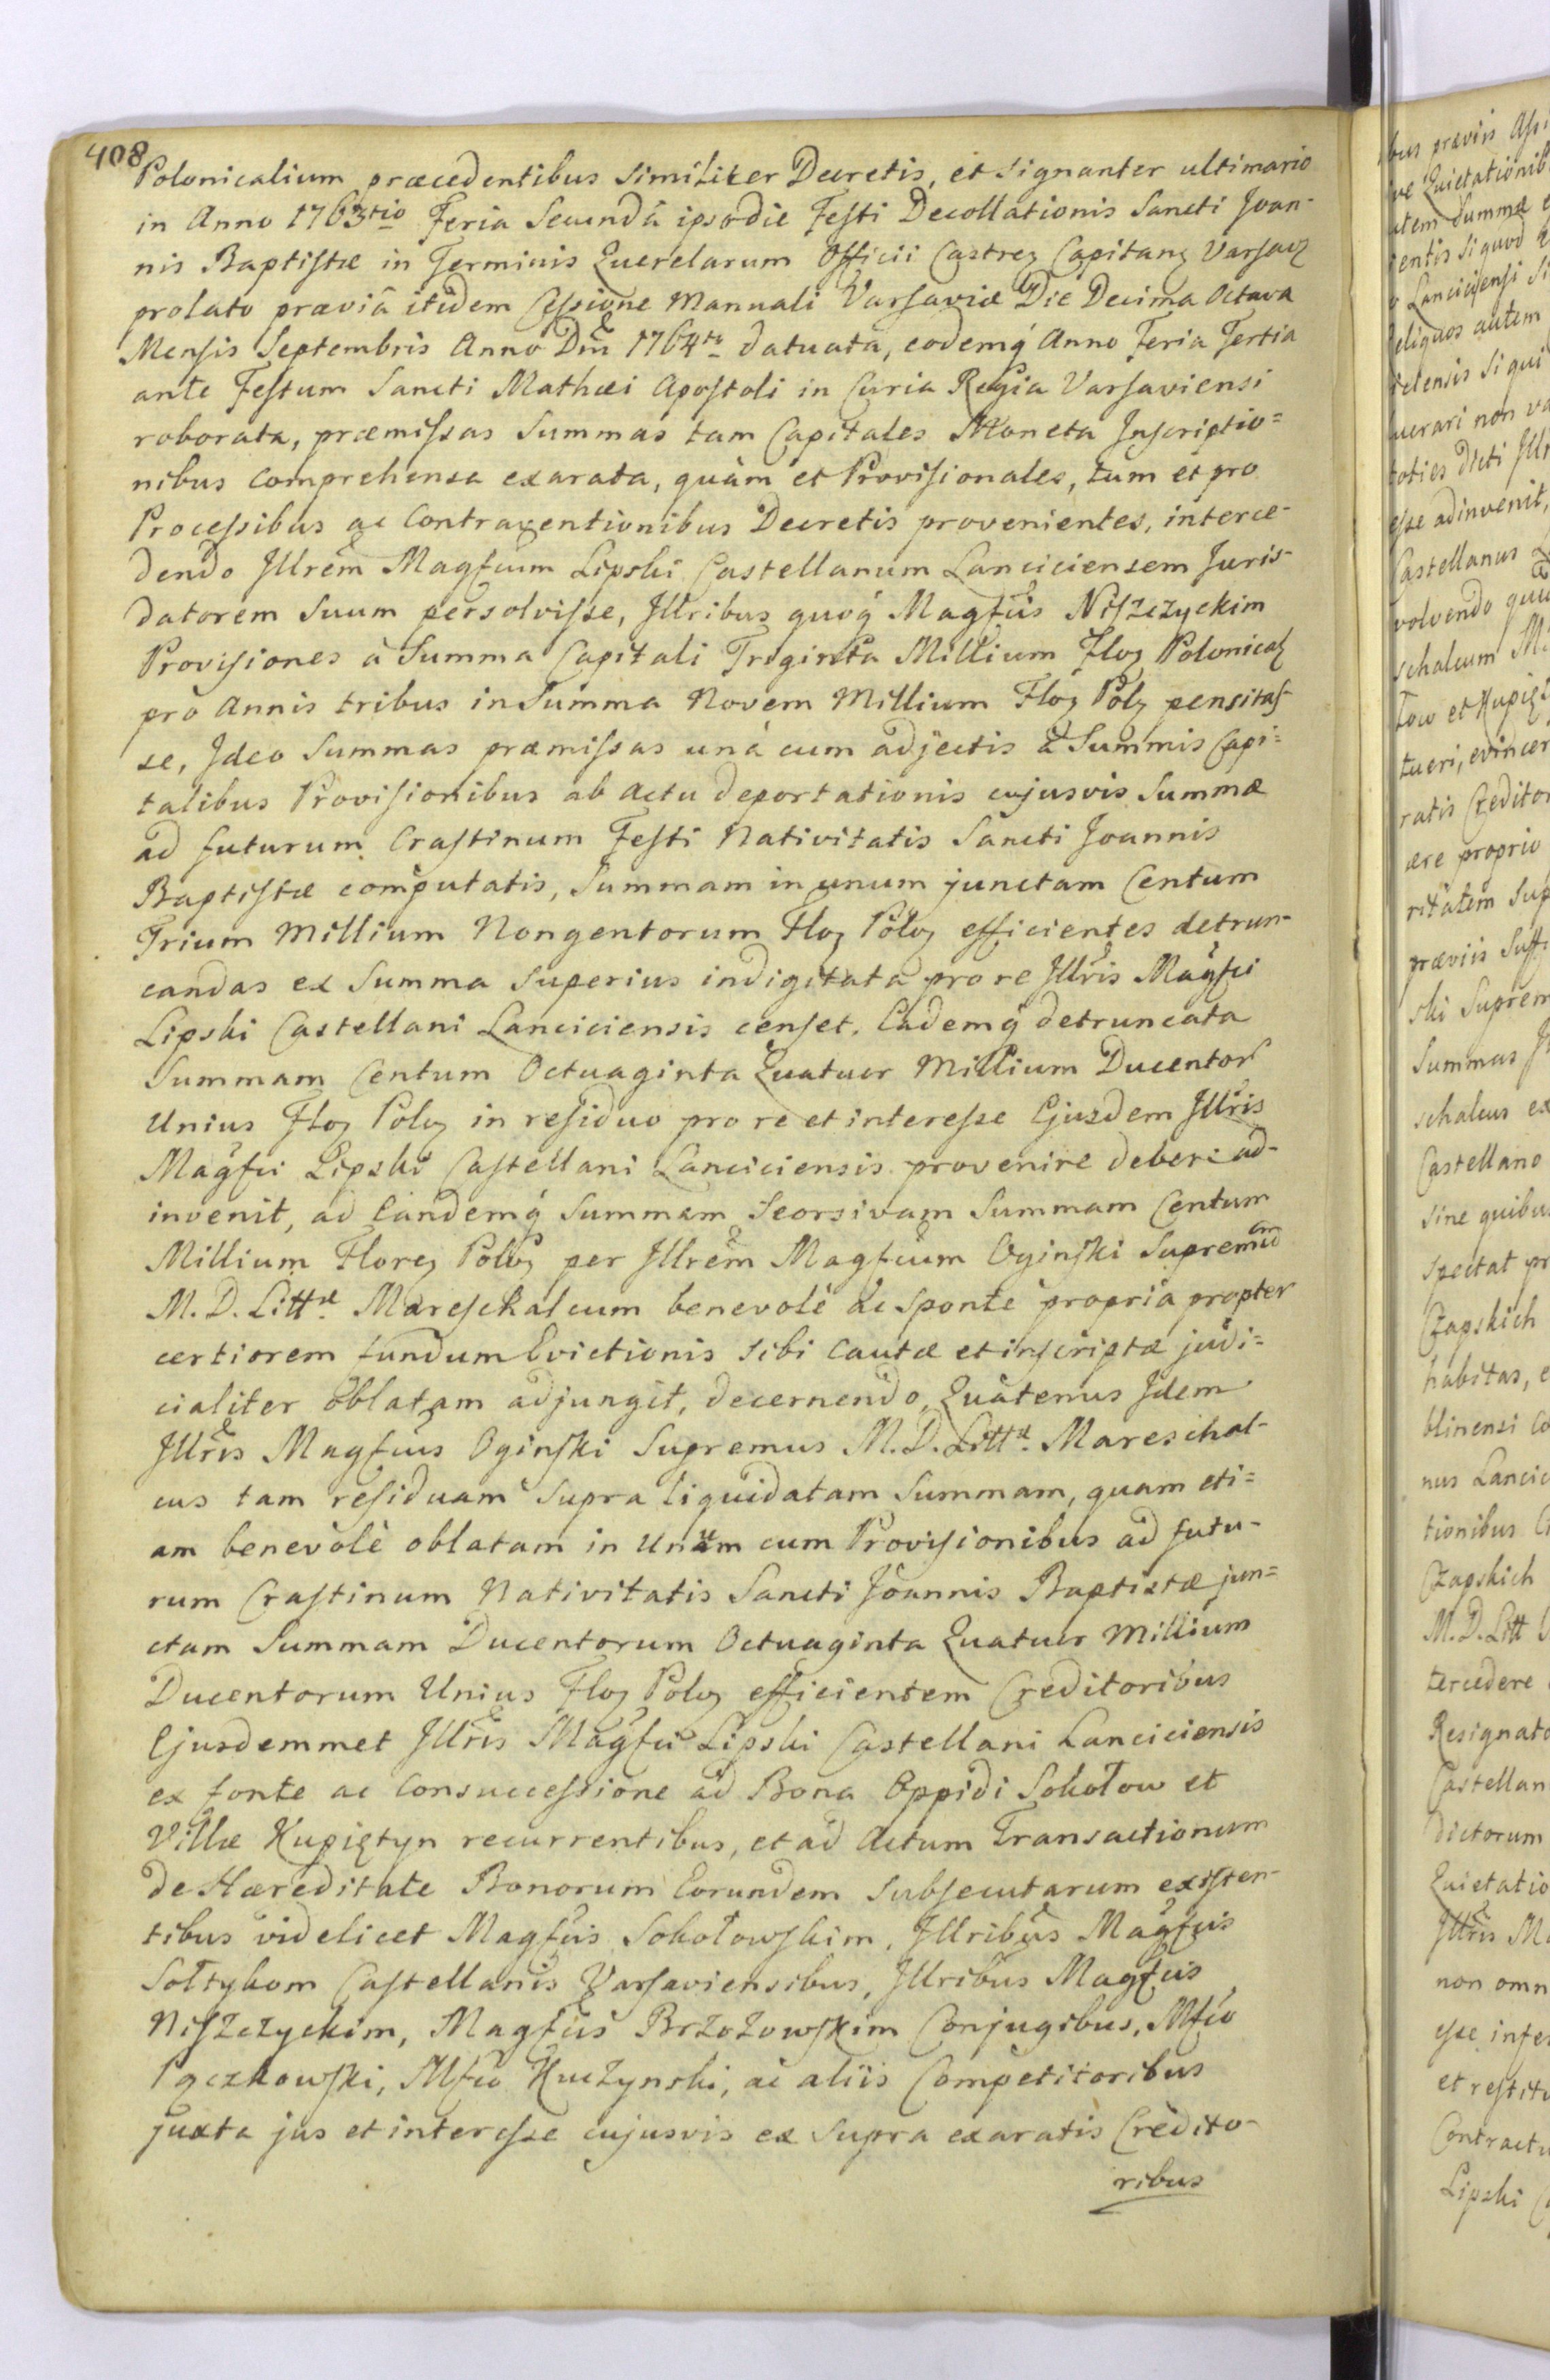 408
Polonicalium præcedentibus similiter Decretis, et signanter ultimario
in Anno 1763tio Feria Secundâ ipsodie Festi Decollationis Sancti Joan-
nis Baptistæ in Terminis Querelarum Officii Castren Capitan Varsav
prolato præviâ itidem Cessione Manuali Varsaviæ Die Decima Octava
Mensis Septembris Anno Dni 1764to datuata, eodemq́ Anno Feria Tertia
ante Festum Sancti Mathæi Apostoli in Curia Regia Varsaviensi
roborata, præmissas Summas tam Capitales Moneta Inscriptio=
nibus comprehensa exarata, quàm et Provisionales, tum et pro
Processibus ac Contraventionibus Decretis provenientes, interce-
dendo Illrem Magfcum Lipski Castellanum Lanciciensem Juris-
datorem Suum persolvisse, Illribus quoq́ Magfcis Niszczyckim
Provisiones à Summa Capitali Triginta Millium Flor Polonical
pro Annis tribus in Summa Novem Millium Flor Pol pensitas-
se, Ideo Summas præmissas unà cum adjectis à Summis Capi=
talibus Provisionibus ab Actu deportationis cujusvis Summæ
ad futurum Crastinum Festi Nativitatis Sancti Joannis
Baptistæ computatis, Summam in unum junctam Centum
Trium Millium Nongentorum Flor Polon efficientes detrun-
candas ex Summa superius indigitata pro re Illris Magfci
Lipski Castellani Lanciciensis censet. Eademq́ detruncata
Summam Centum Octuaginta Quatuor Millium Ducentor
Unius Flor Polon in residuo pro re et interesse Ejusdem Illris
Magfci Lipski Castellani Lanciciensis provenire deberi ad-
invenit, ad Eandemq́ Summam Seorsivam Summam Centum
Millium Floren Polon per Illrem Magfcum Oginski Supremum
M. D. Littæ. Mareschalcum benevolè ac sponte propriâ propter
certiorem fundum Evictionis sibi Cautæ et inscriptæ judi=
cialiter oblatam adjungit, decernendo, Quatenus Idem
Illris Magfcus Oginski Supremus M. D. Littæ. Mareschal-
cus tam residuam supra liquidatam Summam, quam eti=
am benevolè oblatam in Unum cum Provisionibus ad futu-
rum Crastinum Nativitatis Sancti Joannis Baptistæ jun=
ctam Summam Ducentorum Octuaginta Quatuor Millium
Ducentorum Unius Flor Polon efficientem Creditoribus
Ejusdemmet Illris Magfci Lipski Castellani Lanciciensis
ex fonte ac Consuccessione ad Bona Oppidi Sokołow et
Villæ Kupiętyn recurrentibus, et ad Actum Transactionum
de Hæreditate Bonorum Eorundem subsecutarum existen-
tibus videlicet Magfcis Sokołowskim, Illribus Magfcis
Sołtykom Castellanis Varsaviensibus, Illribus Magfcis
Niszczyckim, Magfcis Brzozowskim Conjugibus, Mfco
Pączkowski, Mfco Kuczynski, ac aliis Competitoribus
juxta jus et interesse cujusvis ex supra exaratis Credito-
ribus